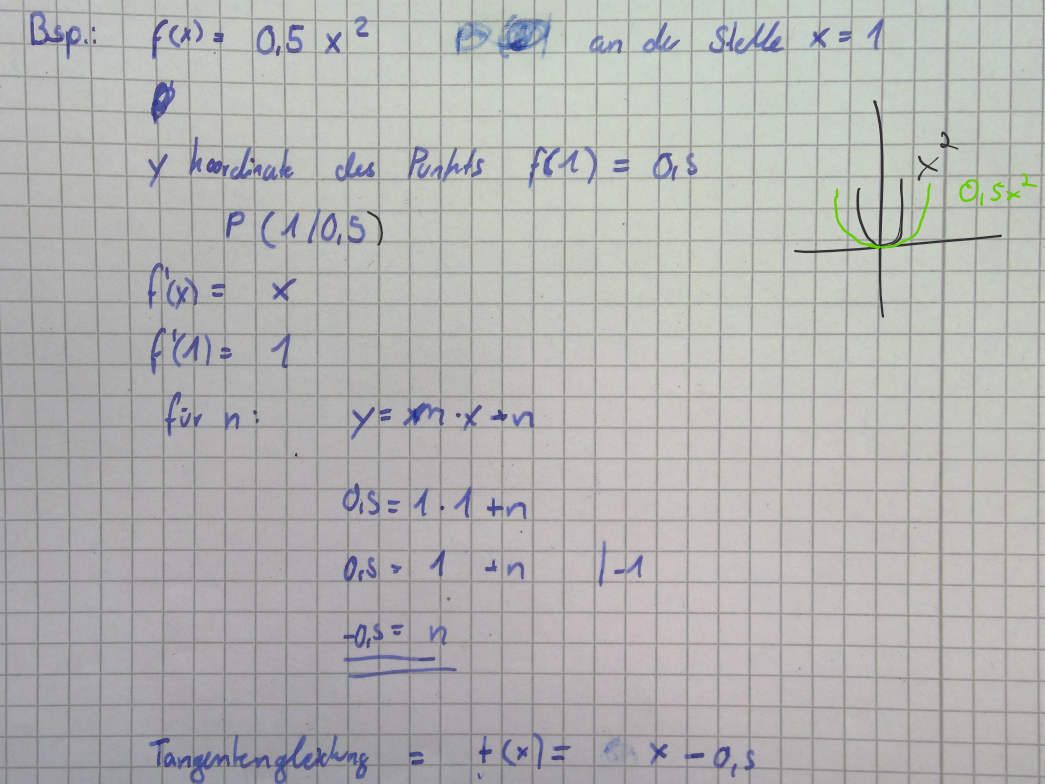 Bsp.: f(x) = 0,5 x² an der Stelle x = 1
y koordinate des Punkts f(1) = 0,5
x²
0,5x²
P (1/0,5)
f'(x) = x
f'(1) = 1
für n: y = m · x + n
0,5 = 1 · 1 + n
0,5 = 1 + n |-1
-0,5 = n
Tangentengleichung = t(x) = x - 0,5